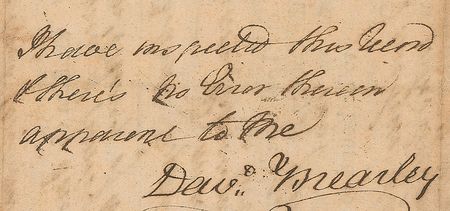 I have inspected this Record
& there's no Error therein
apparent to Me
Dav.d Brearley